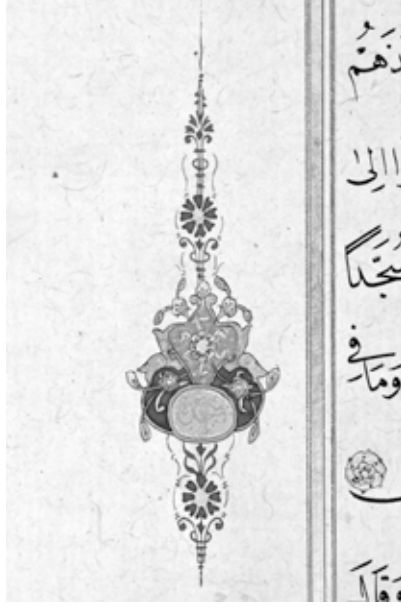 ذَهُمْ
ا اِلٰى
سُجَّدًا
وَمَا فِي
وَقَالَ